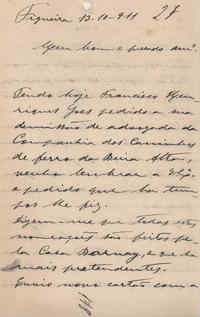 Figueira 13-10-911 27
Meu bom e presado am.º
Tendo hoje Francisco Hen-
riques Goes pedido a sua
demissão de advogado da
Companhia dos Caminhos
de ferro da Beira Alta,
venho lembrar a V. Ex.ª
o pedido que ha tem-
pos lhe fiz.
Dizem-me que todas estas
nomeações são feitas pe-
la Casa Burnay, e que ha
mais pretendentes.
Envio nova carta com a